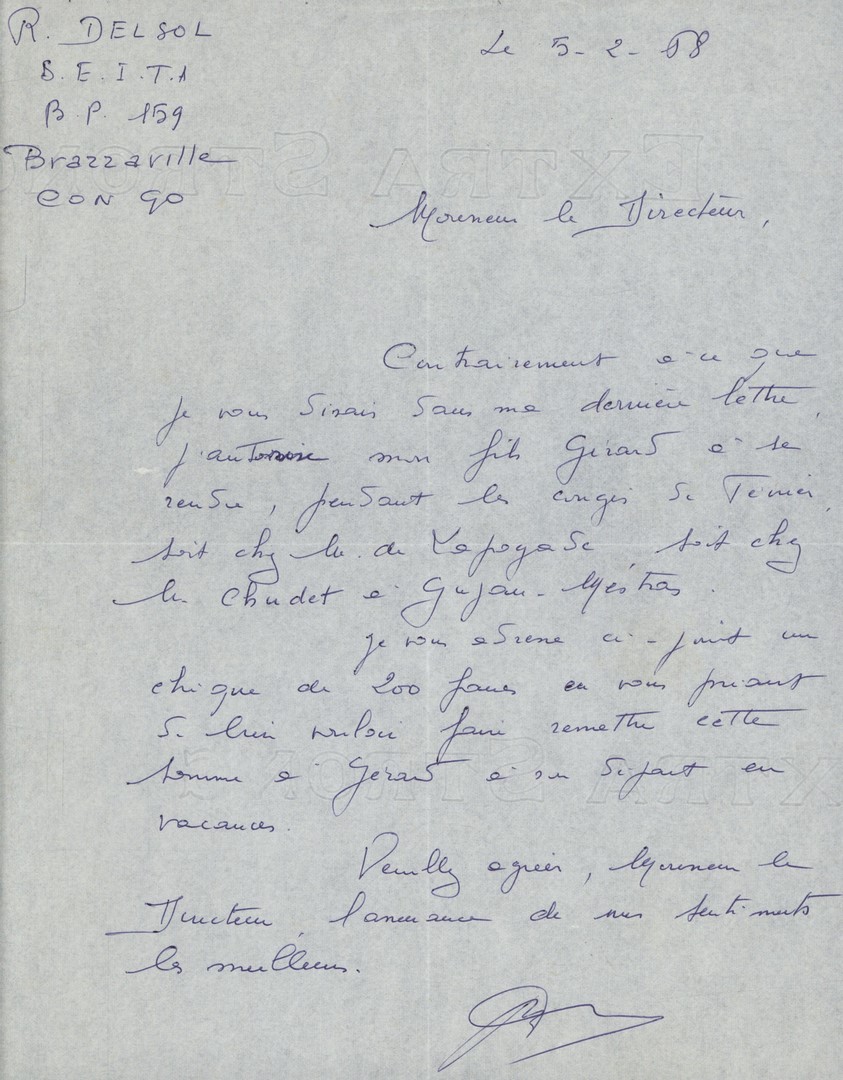 R. DELSOL
B.E.I.T.A
B.P. 159
Brazzaville
CONGO
Le 5-2-68
EXTRA STRONG
Monsieur le Directeur,
Contrairement à ce que
je vous disais dans ma dernière lettre,
j'autorise mon fils Gérard à se
rendre, pendant les congés de Février,
soit chez M. de Lapogade, soit chez
M. Chudet à Gujan-Mestras.
Je vous adresse ci-joint un
chèque de 200 francs en vous priant
de bien vouloir faire remettre cette
somme à Gérard à son départ en
vacances.
EXTRA STRONG
Veuillez agréer, Monsieur le
Directeur, l'assurance de mes sentiments
les meilleurs.